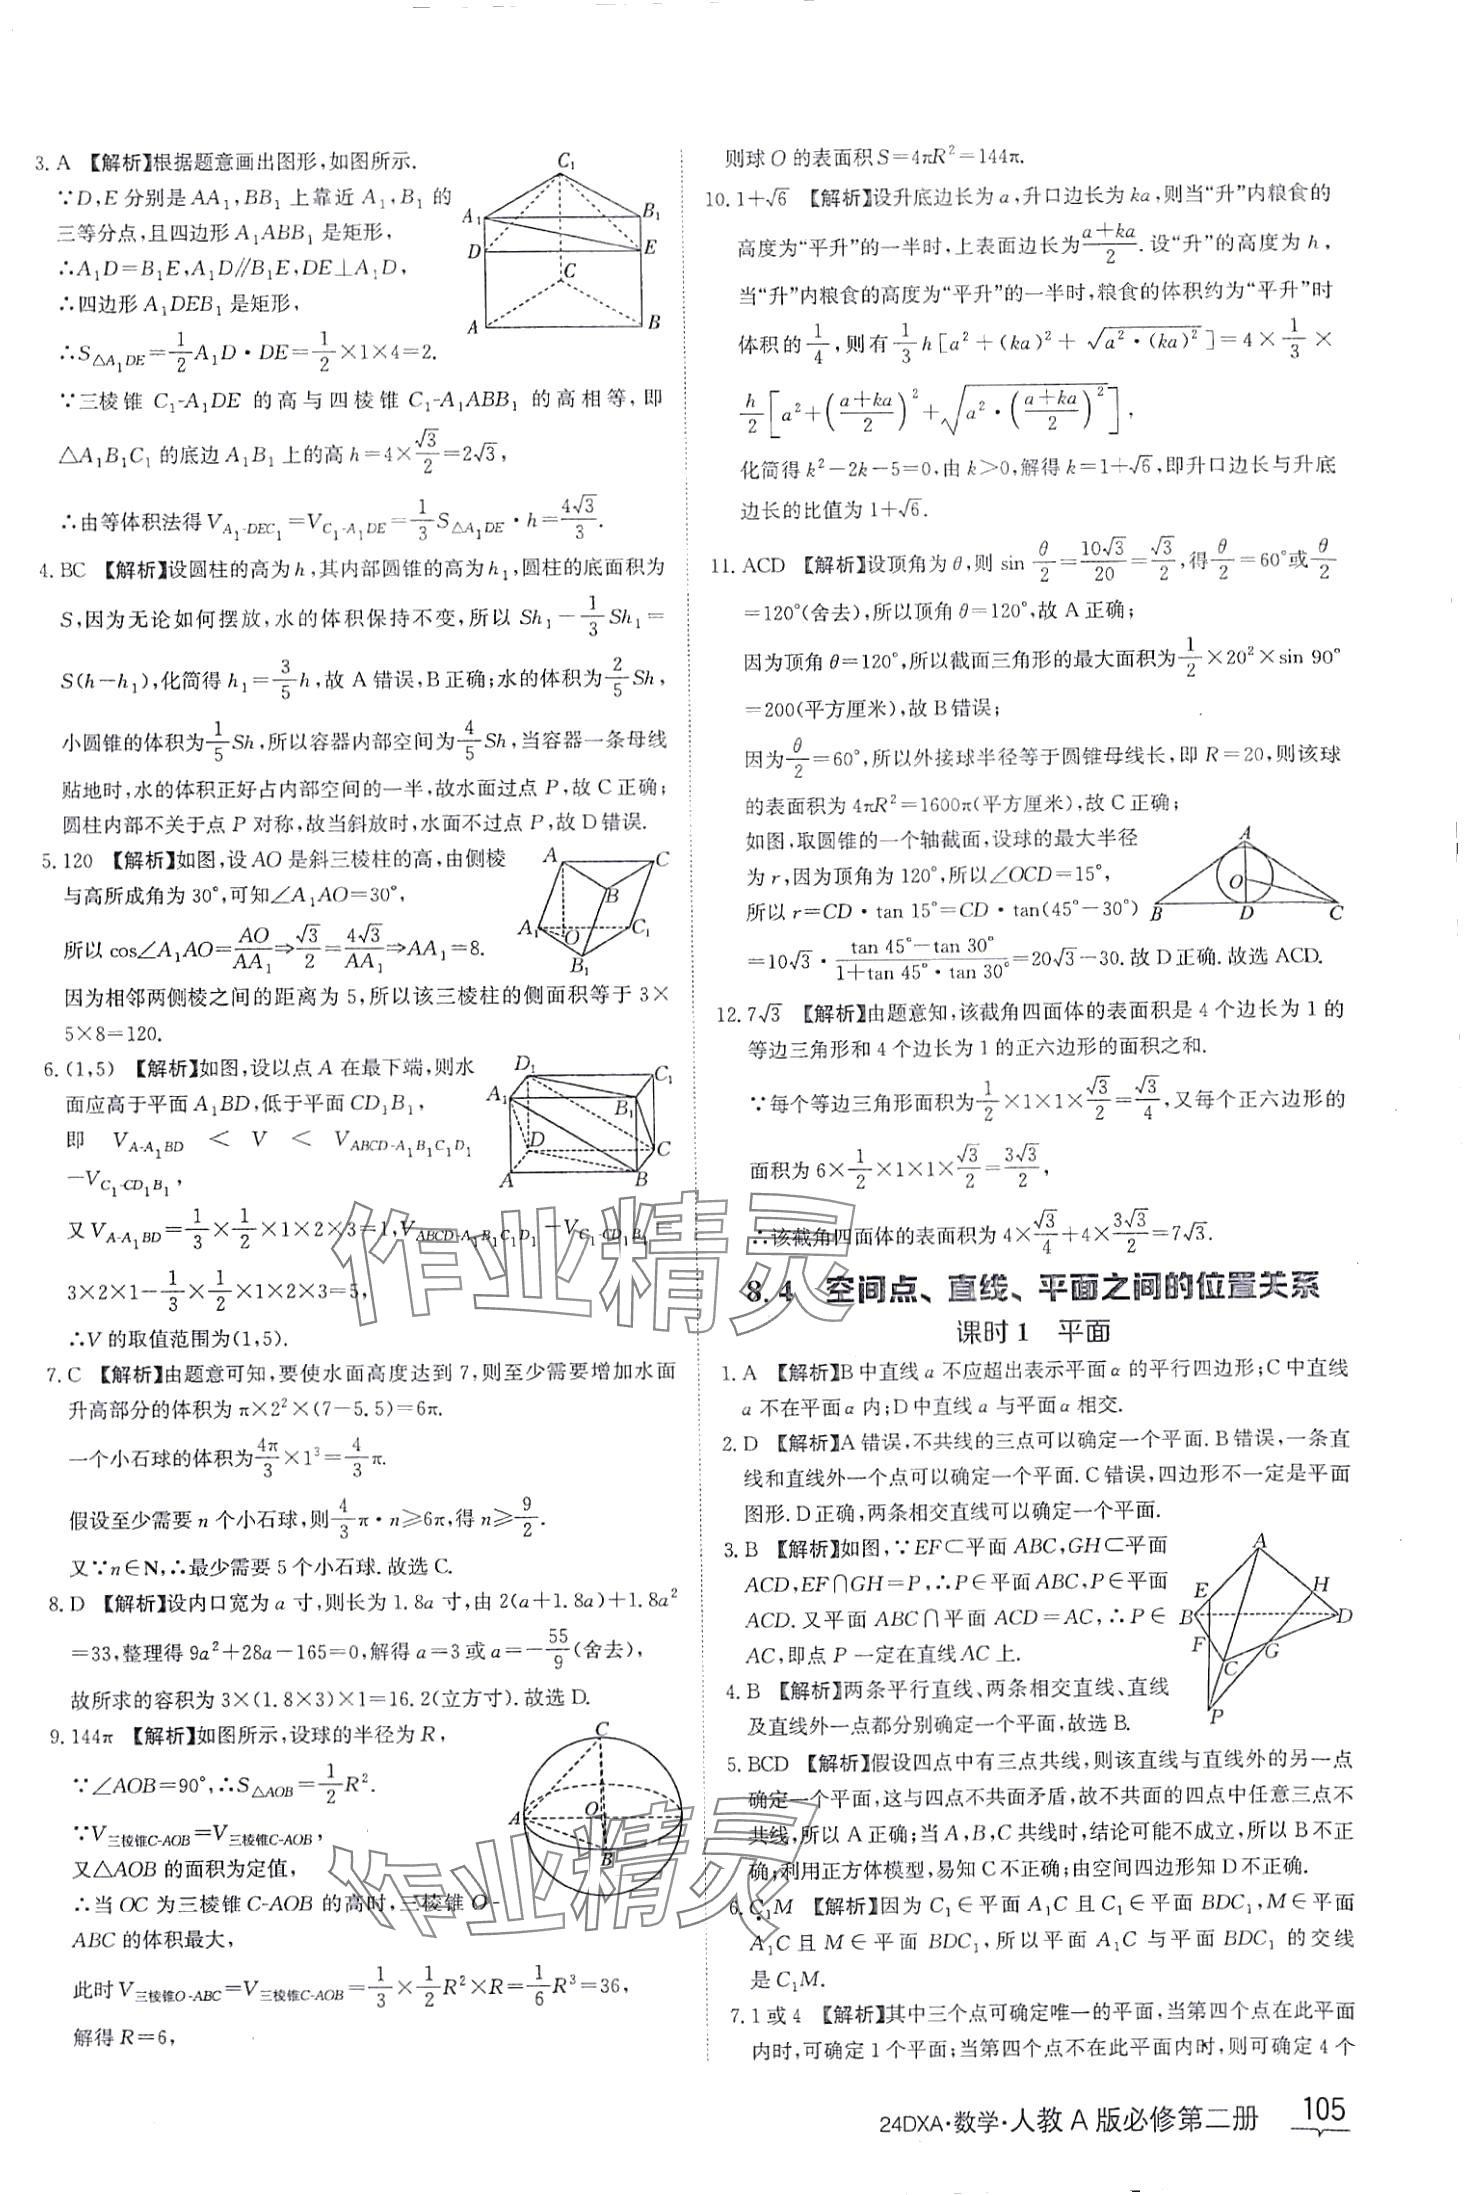 3. A 【解析】根据题意画出图形,如图所示.
∵D,E 分别是 AA₁,BB₁ 上靠近 A₁,B₁ 的
三等分点,且四边形 A₁ABB₁ 是矩形,
∴A₁D=B₁E,A₁D∥B₁E,DE⊥A₁D,
∴四边形 A₁DEB₁ 是矩形,
∴S△A₁DE=1/2 A₁D·DE=1/2×1×4=2.
∵三棱锥 C₁-A₁DE 的高与四棱锥 C₁-A₁ABB₁ 的高相等,即
△A₁B₁C₁ 的底边 A₁B₁ 上的高 h=4×√3/2=2√3,
∴由等体积法得 V A₁-DEC₁=V C₁-A₁DE=1/3 S△A₁DE·h=4√3/3.
C₁ A₁ B₁ D E C A B
4. BC 【解析】设圆柱的高为 h,其内部圆锥的高为 h₁,圆柱的底面积为
S,因为无论如何摆放,水的体积保持不变,所以 Sh₁-1/3 Sh₁=
S(h-h₁),化简得 h₁=3/5 h,故 A 错误,B 正确;水的体积为 2/5 Sh,
小圆锥的体积为 1/5 Sh,所以容器内部空间为 4/5 Sh,当容器一条母线
贴地时,水的体积正好占内部空间的一半,故水面过点 P,故 C 正确;
圆柱内部不关于点 P 对称,故当斜放时,水面不过点 P,故 D 错误.
5. 120 【解析】如图,设 AO 是斜三棱柱的高,由侧棱
与高所成角为 30°,可知∠A₁AO=30°,
所以 cos∠A₁AO=AO/AA₁⇒√3/2=4√3/AA₁⇒AA₁=8.
因为相邻两侧棱之间的距离为 5,所以该三棱柱的侧面积等于 3×
5×8=120.
A C B A₁ O C₁ B₁
6. (1,5) 【解析】如图,设以点 A 在最下端,则水
面应高于平面 A₁BD,低于平面 CD₁B₁,
即 V A-A₁BD < V < V ABCD-A₁B₁C₁D₁
-V C₁-CD₁B₁,
又 V A-A₁BD=1/3×1/2×1×2×3=1,V ABCD-A₁B₁C₁D₁-V C₁-CD₁B₁=
3×2×1-1/3×1/2×1×2×3=5,
∴V 的取值范围为(1,5).
D₁ C₁ A₁ B₁ D C A B
7. C 【解析】由题意可知,要使水面高度达到 7,则至少需要增加水面
升高部分的体积为 π×2²×(7-5.5)=6π.
一个小石球的体积为 4π/3×1³=4/3 π.
假设至少需要 n 个小石球,则 4/3 π·n≥6π,得 n≥9/2.
又∵n∈N,∴最少需要 5 个小石球.故选 C.
8. D 【解析】设内口宽为 a 寸,则长为 1.8a 寸,由 2(a+1.8a)+1.8a²
=33,整理得 9a²+28a-165=0,解得 a=3 或 a=-55/9(舍去),
故所求的容积为 3×(1.8×3)×1=16.2(立方寸).故选 D.
9. 144π 【解析】如图所示,设球的半径为 R,
∵∠AOB=90°,∴S△AOB=1/2 R².
∵V三棱锥C-AOB=V三棱锥C-AOB,
又△AOB 的面积为定值,
∴当 OC 为三棱锥 C-AOB 的高时,三棱锥 O-
ABC 的体积最大,
此时 V三棱锥O-ABC=V三棱锥C-AOB=1/3×1/2 R²×R=1/6 R³=36,
解得 R=6,
C A O B
则球 O 的表面积 S=4πR²=144π.
10. 1+√6 【解析】设升底边长为 a,升口边长为 ka,则当“升”内粮食的
高度为“平升”的一半时,上表面边长为 (a+ka)/2.设“升”的高度为 h,
当“升”内粮食的高度为“平升”的一半时,粮食的体积约为“平升”时
体积的 1/4,则有 1/3 h[a²+(ka)²+√(a²·(ka)²)]=4×1/3×
h/2[a²+((a+ka)/2)²+√(a²·((a+ka)/2)²)],
化简得 k²-2k-5=0,由 k>0,解得 k=1+√6,即升口边长与升底
边长的比值为 1+√6.
11. ACD 【解析】设顶角为 θ,则 sin θ/2=10√3/20=√3/2,得 θ/2=60°或 θ/2
=120°(舍去),所以顶角 θ=120°,故 A 正确;
因为顶角 θ=120°,所以截面三角形的最大面积为 1/2×20²×sin 90°
=200(平方厘米),故 B 错误;
因为 θ/2=60°,所以外接球半径等于圆锥母线长,即 R=20,则该球
的表面积为 4πR²=1600π(平方厘米),故 C 正确;
如图,取圆锥的一个轴截面,设球的最大半径
为 r,因为顶角为 120°,所以∠OCD=15°,
所以 r=CD·tan 15°=CD·tan(45°-30°)
=10√3·(tan 45°-tan 30°)/(1+tan 45°·tan 30°)=20√3-30.故 D 正确.故选 ACD.
A O B D C
12. 7√3 【解析】由题意知,该截角四面体的表面积是 4 个边长为 1 的
等边三角形和 4 个边长为 1 的正六边形的面积之和.
∵每个等边三角形面积为 1/2×1×1×√3/2=√3/4,又每个正六边形的
面积为 6×1/2×1×1×√3/2=3√3/2,
∴该截角四面体的表面积为 4×√3/4+4×3√3/2=7√3.
8.4 空间点、直线、平面之间的位置关系
课时 1 平面
1. A 【解析】B 中直线 a 不应超出表示平面 α 的平行四边形;C 中直线
a 不在平面 α 内;D 中直线 a 与平面 α 相交.
2. D 【解析】A 错误,不共线的三点可以确定一个平面.B 错误,一条直
线和直线外一个点可以确定一个平面.C 错误,四边形不一定是平面
图形.D 正确,两条相交直线可以确定一个平面.
3. B 【解析】如图,∵EF⊂平面 ABC,GH⊂平面
ACD,EF∩GH=P,∴P∈平面 ABC,P∈平面
ACD.又平面 ABC∩平面 ACD=AC,∴P∈
AC,即点 P 一定在直线 AC 上.
A E H B D F G C P
4. B 【解析】两条平行直线、两条相交直线、直线
及直线外一点都分别确定一个平面,故选 B.
5. BCD 【解析】假设四点中有三点共线,则该直线与直线外的另一点
确定一个平面,这与四点不共面矛盾,故不共面的四点中任意三点不
共线,所以 A 正确;当 A,B,C 共线时,结论可能不成立,所以 B 不正
确;利用正方体模型,易知 C 不正确;由空间四边形知 D 不正确.
6. C₁M 【解析】因为 C₁∈平面 A₁C 且 C₁∈平面 BDC₁,M∈平面
A₁C 且 M∈平面 BDC₁,所以平面 A₁C 与平面 BDC₁ 的交线
是 C₁M.
7. 1 或 4 【解析】其中三个点可确定唯一的平面,当第四个点在此平面
内时,可确定 1 个平面;当第四个点不在此平面内时,则可确定 4 个
24DXA·数学·人教 A 版必修第二册 105
作业精灵
作业精灵